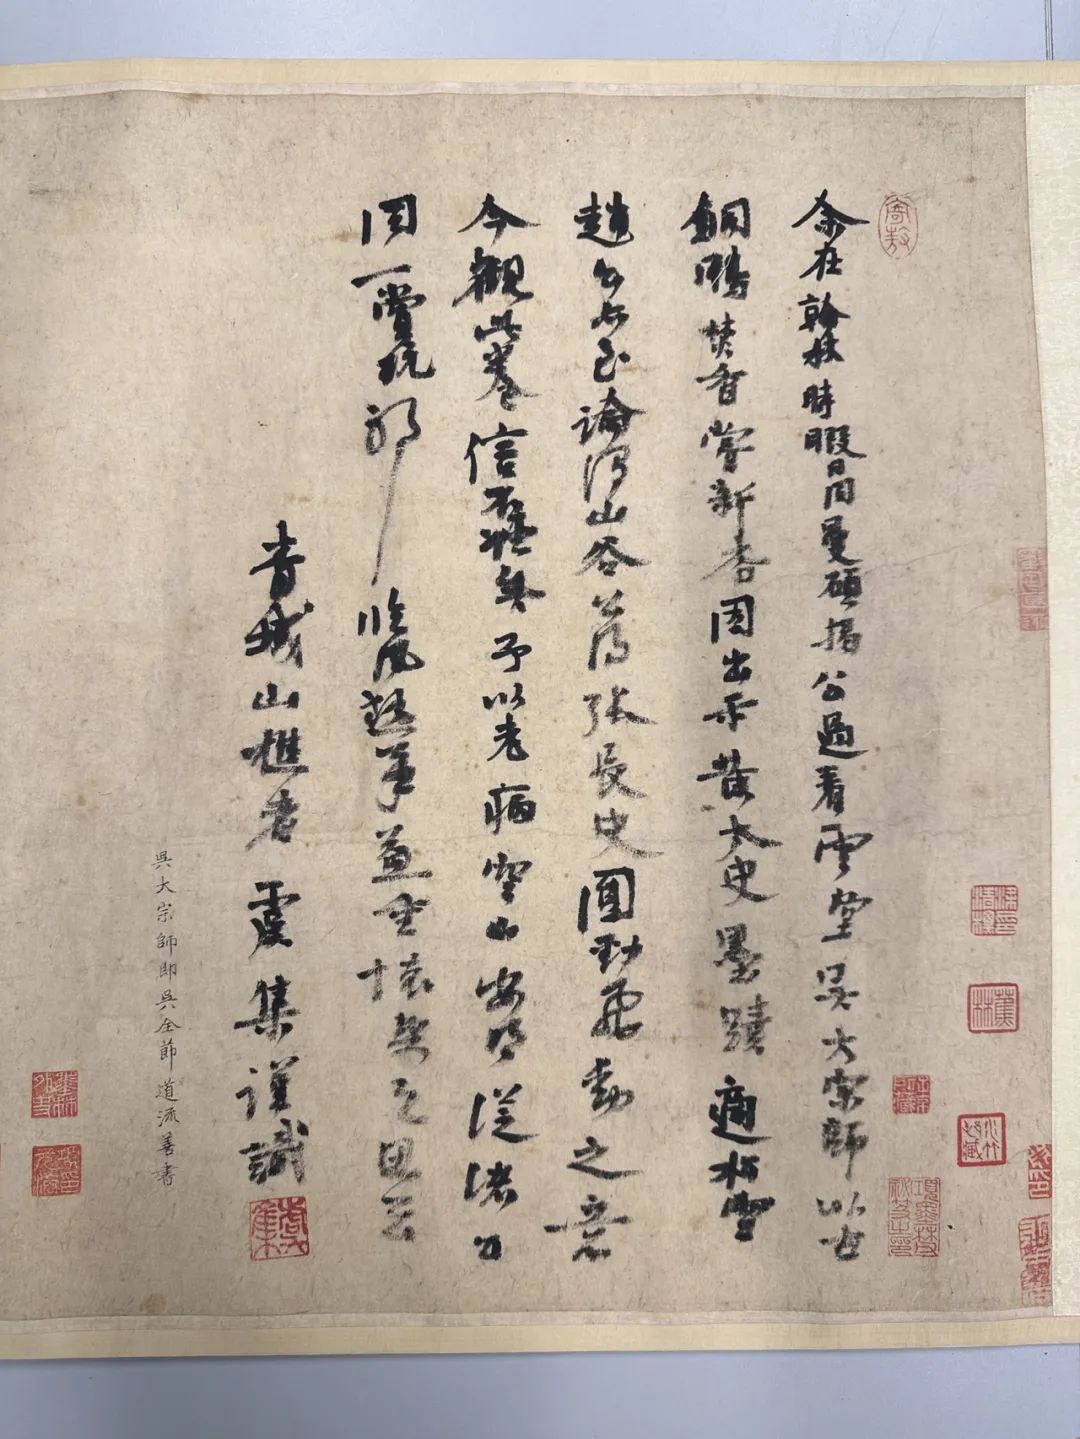 余在翰林時暇日同曼碩揭公過看雲堂吳大宗師以古
銅鴨焚香嘗新杏因出示黃太史墨蹟適松雪
趙公亦至論山谷得張長史圓勁飛動之意
今觀此卷信不誣矣予以老病空山安得從諸公
同一賞玩耶臨風筆益重懷之思云
青城山樵者虞集謹識
吳大宗師即吳全節道流善書
虞集
蕉林